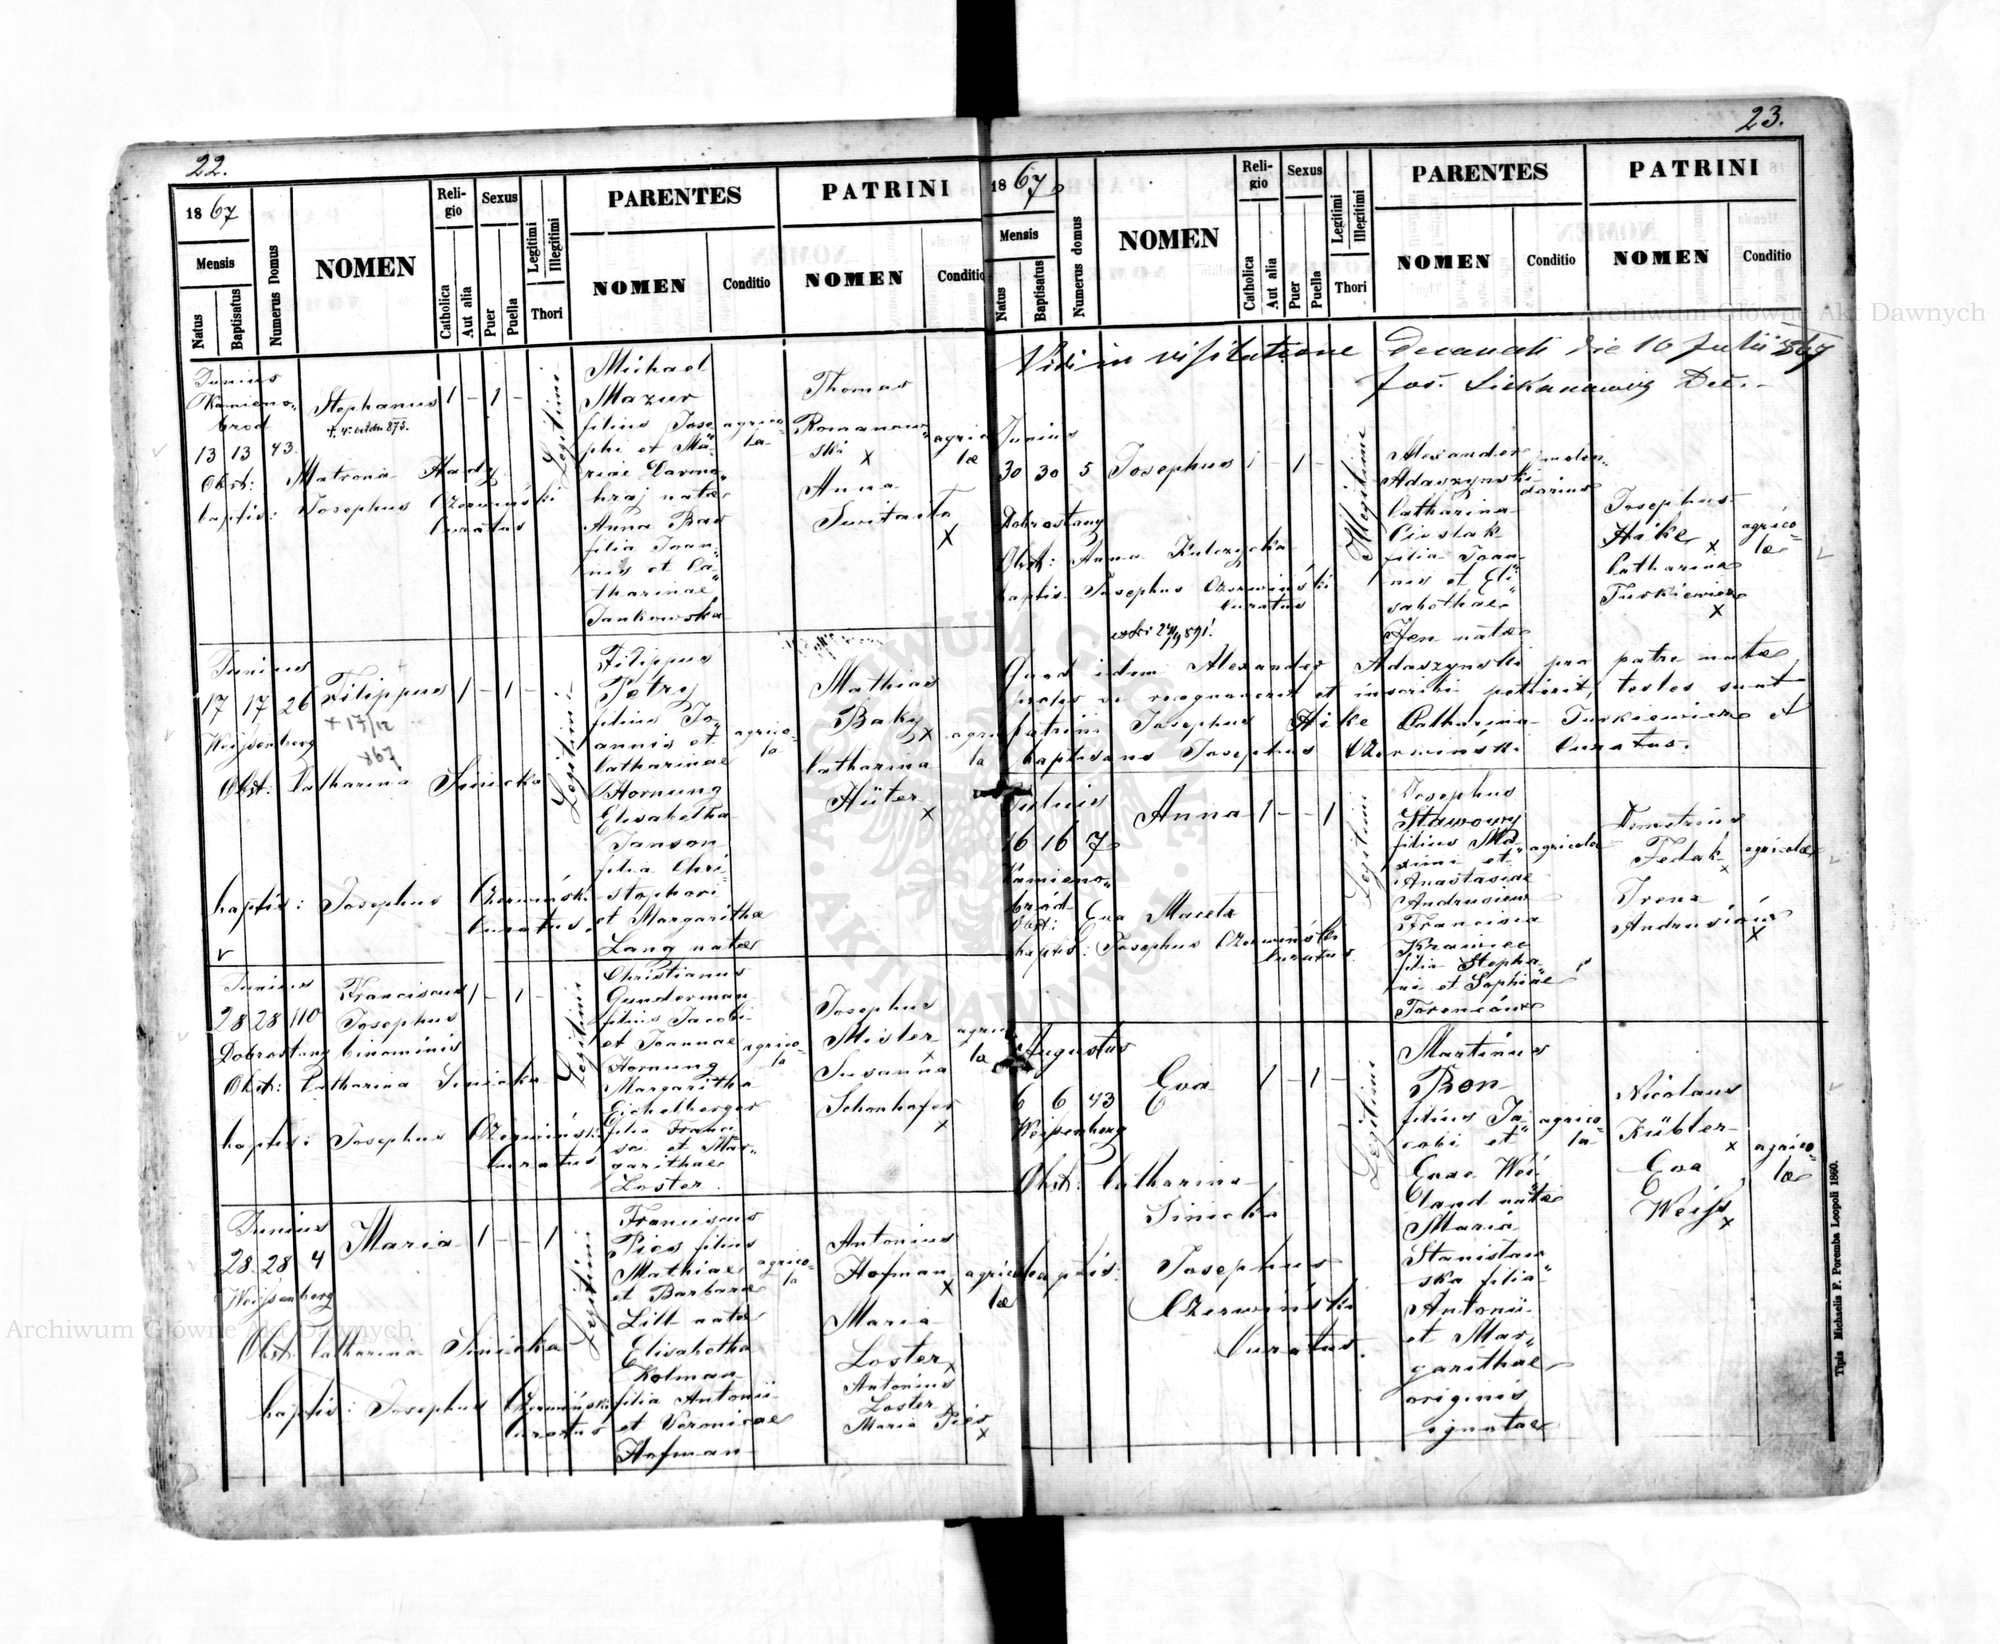 22.
1867
Mensis
Natus
Baptisatus
Numerus Domus
NOMEN
Religio
Catholica
Aut alia
Sexus
Puer
Puella
Legitimi
Illegitimi
Thori
PARENTES
NOMEN
Conditio
PATRINI
NOMEN
Conditio
Junius
Kamieno„
brod
13 13 43
Stephanus 1 – 1 –
Legitimi
Michael
Mazur
filius Jose„
phi et Ma„
riae
nata
Anna Bas
filia Joan„
nis et Ca„
tharinae
Jankowska
agrico„
la
Thomas
Romanow„
ski x
Anna
x
agrico
læ
Obst: Matrona Hady
baptis: Josephus Czerwiński
Curatus
Junius
17 17 26
Weissenberg
Filippus 1 – 1 –
+ 17/12
867
Legitimi
Filippus
Petry
filius Jo„
annis et
Catharinae
Hornung
Elisabetha
Janson
filia Chri„
stophori
et Margaritha
Lang natæ
agrico„
la
Mathias
Baky x
Catharina
Hüter
x
agrico
la
Obst: Catharina Sinicka
baptis: Josephus Czerwiński
Curatus
Junius
28 28 110
Dobrostany
Franciscus 1 – 1 –
Josephus
binominis
Legitimi
Christianus
Gunderman
filius Jacobi
et Joannae
Hornung
Margaritha
Eichelberger
filia Franci
sci et Mar„
garithae
Loster
agrico„
la
Josephus
Mister
x
Susanna
Schonhofer
x
agrico
læ
Obst: Catharina Sinicka
baptis: Josephus Czerwiński
Curatus
Junius
28 28 4
Weissenberg
Maria 1 – – 1
Legitimi
Franciscus
Pies filius
Mathiae
et Barbara
Litt natæ
Elisabetha
Kolman
filia Antonii
et Veronicae
Hofman
agrico„
la
Antonius
Hofman
x
Maria
Loster x
Antonius
Loster
Maria Pies
x
agrico
læ
Obst: Catharina Sinicka
baptis: Josephus Czerwiński
Curatus
23.
1867
Mensis
Natus
Baptisatus
Numerus domus
NOMEN
Religio
Catholica
Aut alia
Sexus
Puer
Puella
Legitimi
Illegitimi
Thori
PARENTES
NOMEN
Conditio
PATRINI
NOMEN
Conditio
Vidi in visitatione Decanali die 10 Julii 867
Jos. Dec.
Junius
30 30 5
Dobrostany
Josephus 1 – 1 –
Illegitimi
Alexander
Adaszynski
Catharina
Cieslak
filia Joan„
nis et Eli„
sabethae
Hen natæ
molen„
darius
Josephus
Hike x
Catharina
Turkiewicz
x
agrico„
læ
Obst: Anna Kulczycka
baptis: Josephus Czerwiński
Curatus
Quod idem Alexander Adaszynski pro patre natæ
prolis se recognoverit et inscribi petierit, testes sunt
patrini Josephus Hike Catharina Turkiewicz et
baptisans Josephus Czerwiński Curatus.
Julius
16 16 7
Kamieno„
brod
Anna 1 – – 1
Legitimi
Josephus
Stawowy
filius Ma„
ximi et
Anastasiae
Andrusiew
Francisca
Krawiec
filia Stepha„
ni et Sophiae
agricola
Demetrius
Fedak
x
Irena
Andrusiów
x
agricolæ
Obst: Eva Maceta
baptis: Josephus Czerwiński
Curatus
Augustus
6 6 43
Weissenberg
Eva 1 – 1 –
Legitimi
Martinus
Ron
filius Ja„
cobi et
Evae Wei„
land natæ
Maria
Stanislaw„
ska filia
Antonii
et Mar„
garithae
originis
ignotae
agrico„
la
Nicolaus
Kübler
x
Eva
Weiss
x
agrico„
læ
Obst: Catharina
Sinicka
baptis: Josephus
Czerwiński
Curatus.
Tipis Michaelis F. Poremba Leopoli 1860.
Archiwum Główne Akt Dawnych
Archiwum Główne Akt Dawnych
ARCHIWUM GŁÓWNE AKT DAWNYCH